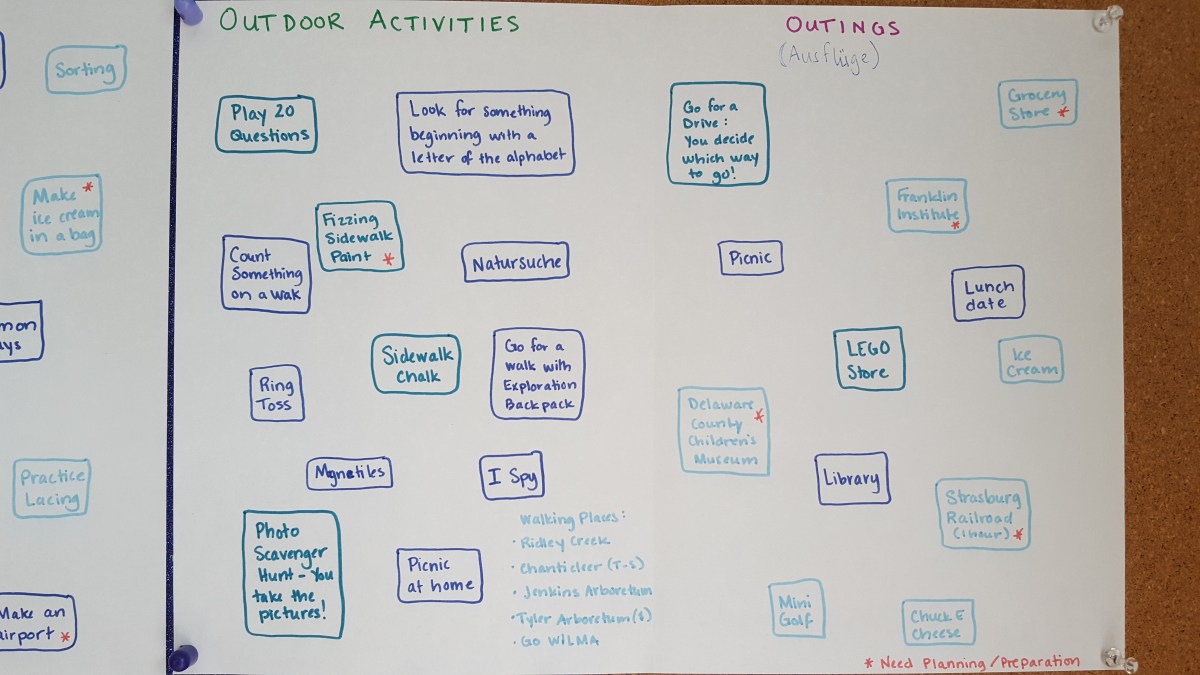 Sorting
Make *
ice cream
in a bag
mon
ays
Practice
Lacing
Make an
airport *
OUTDOOR ACTIVITIES
Play 20
Questions
Look for something
beginning with a
letter of the alphabet
Fizzing
Sidewalk
Paint *
Count
Something
on a wak
Natursuche
Sidewalk
Chalk
Go for a
walk with
Exploration
Backpack
Ring
Toss
Mgnetiles
I Spy
Photo
Scavenger
Hunt - You
take the
pictures!
Picnic
at home
Walking Places:
· Ridley Creek
· Chanticleer (T-S)
· Jenkins Arboretum
· Tyler Arboretum ($)
· Go WILMA
OUTINGS
(Ausflüge)
Go for a
Drive:
You decide
which way
to go!
Grocery
Store *
Franklin
Institute
*
Picnic
Lunch
date
LEGO
Store
Ice
Cream
Delaware
County *
Children's
Museum
Library
Strasburg
Railroad
(1 hour) *
Mini
Golf
Chuck E
Cheese
* Need Planning/Preparation